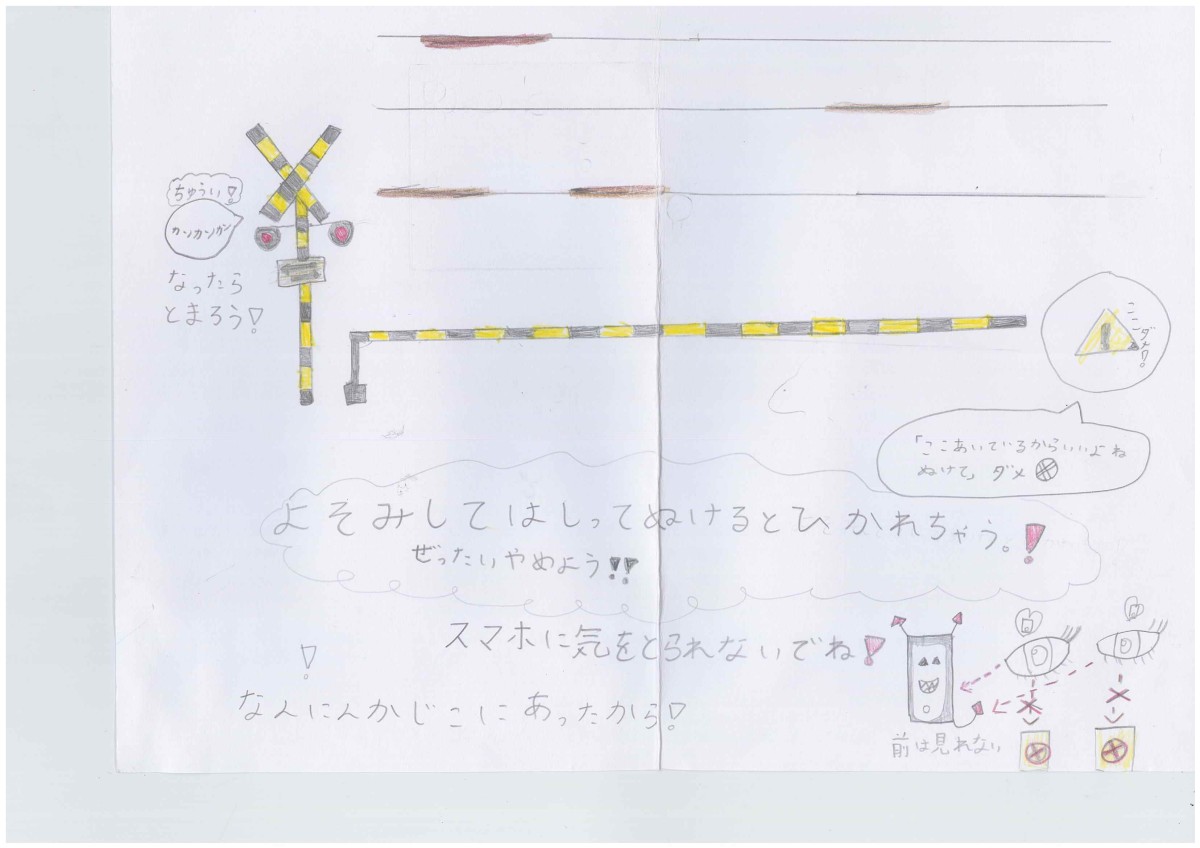 ちゅうい!
カンカンカン
なったら
とまろう!
ここ
ダメ!
「ここあいているからいいよね
ぬけて」ダメ
よそみしてはしってぬけるとひかれちゃう。!
ぜったいやめよう!!
スマホに気をとられないでね!
!
なんにんかじこにあったから!
前は見れない